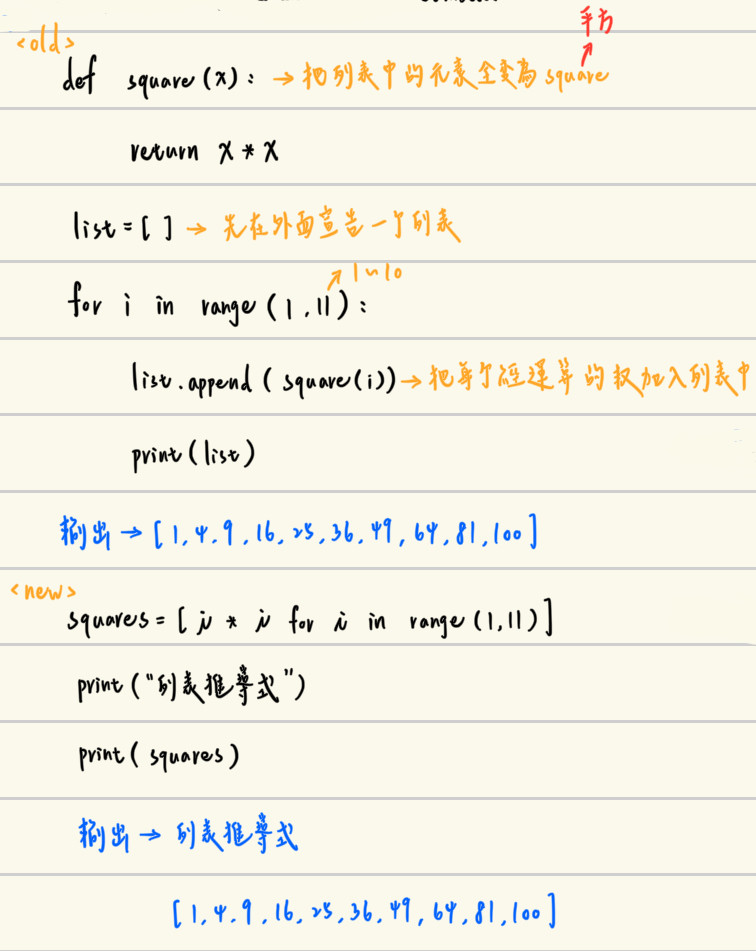 平方
<old>
def square(x): → 把列表中的元素全變為square
return x * x
list = [ ] → 先在外面宣告一个列表
1~10
for i in range(1,11):
list.append(square(i)) → 把每个經運算的数加入列表中
print(list)
輸出 → [1,4,9,16,25,36,49,64,81,100]
<new>
squares = [i * i for i in range(1,11)]
print("列表推導式")
print(squares)
輸出 → 列表推導式
[1,4,9,16,25,36,49,64,81,100]